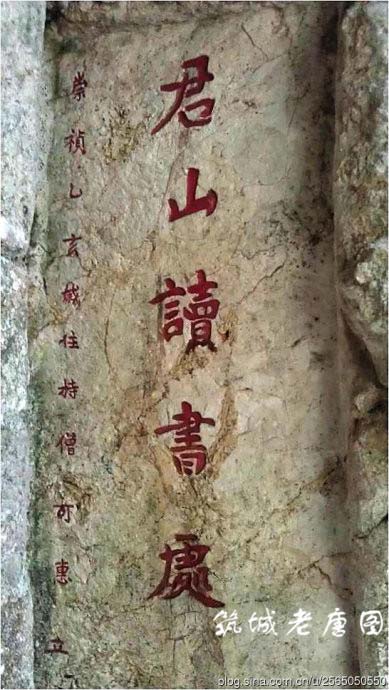 君山讀書處
崇禎乙亥歲住持僧可惠立
筑城老唐图
blog.sina.com.cn/u/2565050550